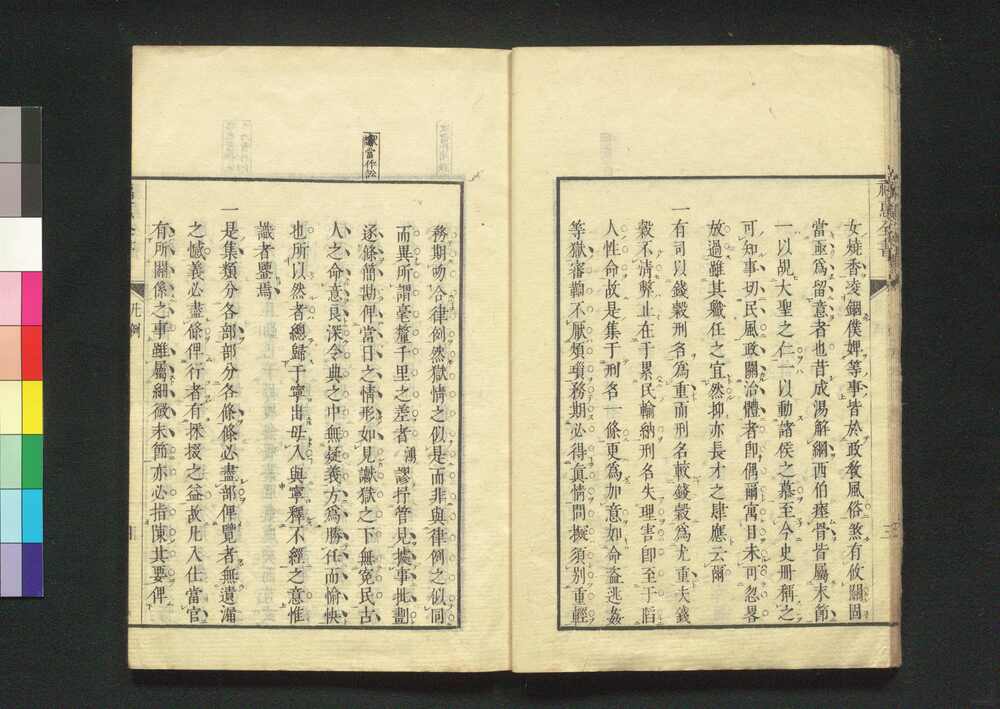 福惠全書
女燒香凌錮僕婢等事皆於政敎風俗煞有攸關固
當亟爲留意者也昔成湯解綱西伯瘞骨皆屬末節
一以覘大聖之仁一以動諸侯之慕至今史冊稱之
可知事切民風政關治體者卽偶爾寓目未可忽畧
放過雖其職任之宜然抑亦長才之肆應云爾
一有司以錢穀刑名爲重而刑名較錢穀爲尤重夫錢
穀不清弊止在于累民輸納刑名失理害卽至于陷
人性命故是集于刑名一條更爲加意如命盜逃姦
等獄審鞫不厭煩瑣務期必得眞情問擬須別重輕
務期吻合律例然獄情之似是而非與律例之似同
而異所謂毫釐千里之差者鴻謬抒管見據事批劃
逐條簡勘俾當日之情形如見讞獄之下無寃民古
人之命意良深令典之中無疑義方爲勝任而愉快
也所以然者總歸于寧出毋入與寧釋不經之意惟
識者鑒焉
一是集類分各部部分各條條必盡部俾覽者無遺漏
之憾義必盡條俾行者有採掇之益故凡入仕當官
有所關係之事雖屬細微末節亦必指陳其要俾
凡例